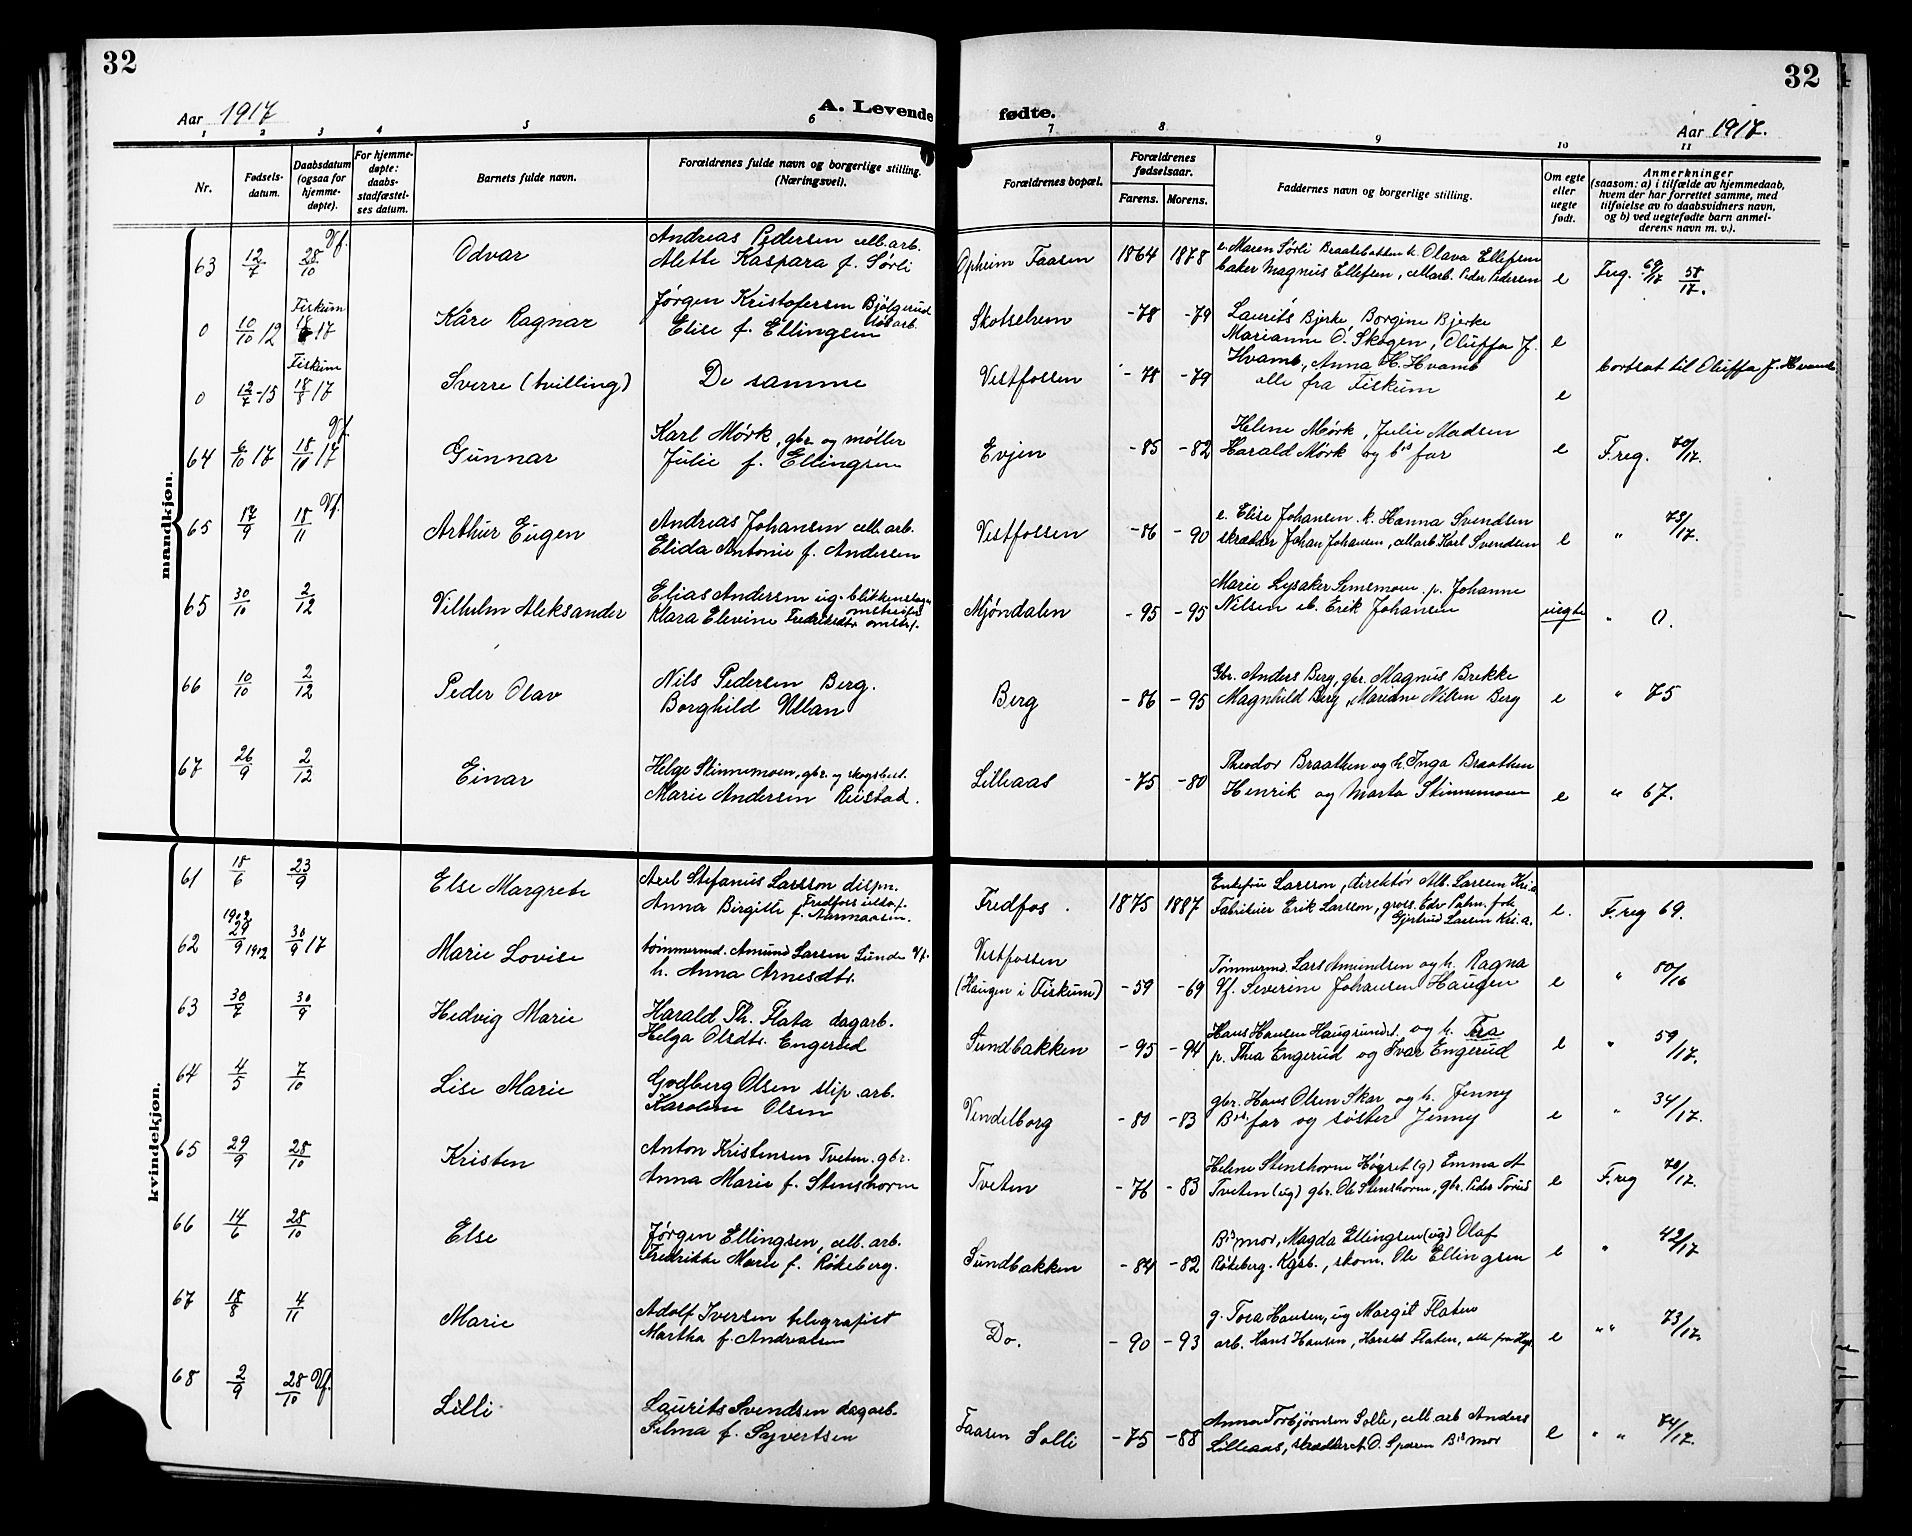 32
Aar 1917
A. Levende
1 2 3 4 5 6
Nr.
Fødsels-
datum.
Daabsdatum
(ogsaa for
hjemme-
døpte).
For hjemme-
døpte:
daabs-
stadfæstel-
ses datum.
Barnets fulde navn.
Forældrenes fulde navn og borgerlige stilling.
(Næringsvei).
mandkjøn.
63 12/7 28/10 Vf. Odvar
Andreas Pedersen cell. arb.
Alette Kaspara f. Sørli
0 10/10 12 Fiskum 18/8 17 Kåre Ragnar
Jørgen Kristofersen Bjølgerud
Elise f. Ellingsen
0 12/7 -15 Fiskum 18/8 17 Sverre (tvilling)
De samme
64 6/10 17 18/11 17 Vf. Gunnar
Karl Mørk, gbr. og møller
Julie f. Ellingsen
65 17/9 18/11 Vf. Arthur Eugen
Andreas Johansen cell. arb.
Elida Antonie f. Andersen
65 30/10 2/12 Vilhelm Aleksander
Elias Andersen ug. blikkenslager
Klara Elevine Fredriksdtr.
66 10/10 2/12 Peder Olav
Nils Pedersen Berg.
Borghild Ullan
67 26/9 2/12 Einar
Helge Stinnemoen, gbr. og skogsbest.
Marie Andersen Reistad.
kvindekjøn.
61 18/6 23/9 Else Margrete
Axel Stefanius Larsson dispn.
Anna Birgitte f. Aasmaasen.
62 1902 29/9 1902 30/9 17 Marie Lovise
tømmermd. Amund Larsen Lunde Vf.
h. Anna Arnesdtr.
63 30/7 30/9 Hedvig Marie
Harald Th. Flata dagarb.
Helga Olsdtr. Engerud
64 4/5 7/10 Lise Marie
Godberg Olsen slip. arb.
Karoline Olsen
65 29/9 28/10 Kristen
Anton Kristensen Tveten. gbr.
Anna Marie f. Stenshorne
66 14/6 28/10 Else
Jørgen Ellingsen, cell. arb.
Fredrikke Marie f. Røkeberg.
67 18/8 4/11 Marie
Adolf Iversen telegrafist
Martha f. Andreasen
68 2/9 28/10 Vf. Lilli
Laurits Svendsen dagarb.
Silma f. Syvertsen
32
fødte.
Aar 1917.
7 8 9 10 11
Forældrenes bopæl.
Forældrenes
fødselsaar.
Farens. Morens.
Faddernes navn og borgerlige stilling.
Om egte
eller
uegte
født.
Anmerkninger
(saasom: a) i tilfælde av hjemmedaab,
hvem der har forrettet samme, med
tilføielse av to daabsvidners navn,
og b) ved uegtefødte barn anmel-
derens navn m. v.).
Opheim Faasen 1864 1878
e. Maren Sørli Braatebakken h. Olava Ellefsen
baker Magnus Ellefsen, cellarb. Peder Pedersen e Freg. 69/17 58/17.
Skotselvem -78 -79
Laurits Bjerke, Borgine Bjerke
Marianne O. Skogen, Oluffa J. e
Vestfossen -78 -79
Hvamb, Anna H. Hvamb
alle fra Fiskum e
bortsat til Oluffa J. Hvamb
Evjen -85 -82
Helene Mørk, Julie Madsen
Harald Mørk og bs far e F.reg. 70/17.
Vestfossen -86 -90
e. Elise Johansen. h. Hanna Svendsen
skrædder Johan Johansen, cellarb. Karl Svendsen e " 73/17.
Mjøndalen -95 -95
Marie Lysaker Semsmoen p. Johanne
Nilsen Erik Johansen uegte " 0.
Berg -86 -95
Gbr. Anders Berg, gbr. Magnus Brekke
Magnhild Berg, Mariane Nilsen Berg e " 75
Lilleaas -75 -80
Theodor Braathen og h. Inga Braathen
Henrik og Marta Stinnemoen e " 67.
Fredfos. 1875 1887
Enkefru Larsson, direktør Alb. Larssen Kr.a
Fabrikeier Erik Larsson,
Gjertrud Larsen Kr.a. e. F.reg 69.
Vestfossen
(Haugen i Fiskum) -59 -69
Tømmermd. Lars Amundsen og h. Ragna
Vf. Severine Johansen Haugen e " 80/16
Sundbakken -95 -94
Hans Hansen Haugsundst. og h. Tea
p. Thea Engerud og Ivar Engerud e " 59/17.
Vendelborg -80 -83
gbr. Hans Olsen Skar og h. Jenny
Bs. far og søster Jenny e " 34/17.
Tveten -76 -83
Helene Stenshorne Høgset (g) Emma A
Tveten (ug) gbr. Ole Stenshorne, gbr. Peder Torud e F.reg 70/17.
Sundbakken -84 -82
Bs mor, Magda Ellingsen (ug) Olaf
Røkeberg. Kgsb., skom. Ole Ellingsen e " 42/17
Do. -90 -93
g. Tora Hansen, ug Margit Flaten
arb. Hans Hansen, Harald Flaten, alle fra e " " 73/17.
Faasen Solli -75 -88
Anna Torbjørnsen Solli, cell. arb Anders
Lilleaas, O. Sparen Bs mor e " " 74/17.